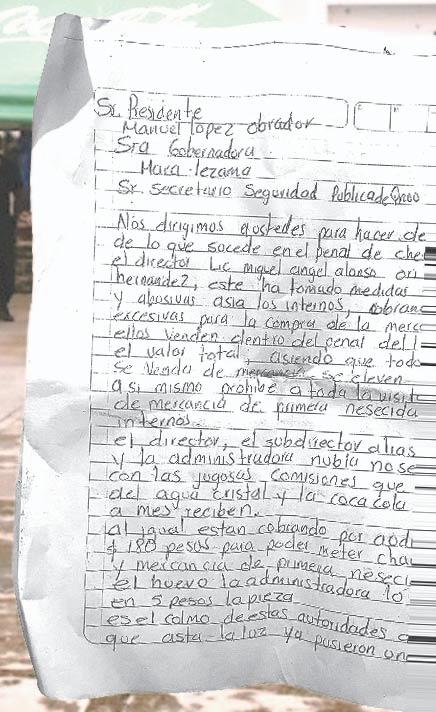 Sr. Presidente
Manuel lopez obrador
Sra Gobernadora
Mara lezama
Sr. Secretario Seguridad Publica de Qroo
Nos dirigimos austedes para hacer de
de lo que socede en el penal de che
el director Lic miguel angel alonso ori
hernandez, este ha tomado medidas
y abosivas asia los internos, cobran
excesivas para la compra de la merc
ellos venden dentro del penal del 1
el valor total, asiendo que todo
se venda de mercancia se eleven
asi mismo prohibe a toda la visit
de mercancia de primera nesecida
internos.
el director, el subdirector alias
y la administradora nubia no se
con las jugosas comisiones que
del agua cristal y la coca cola
a mes reciben.
al igual estan cobrando por
$ 180 pesos para poder meter
y mercancia de primera neseci
el huevo la administradora lo
en 5 pesos la pieza
es el colmo de estas autoridades
que asta la luz ya pusieron un